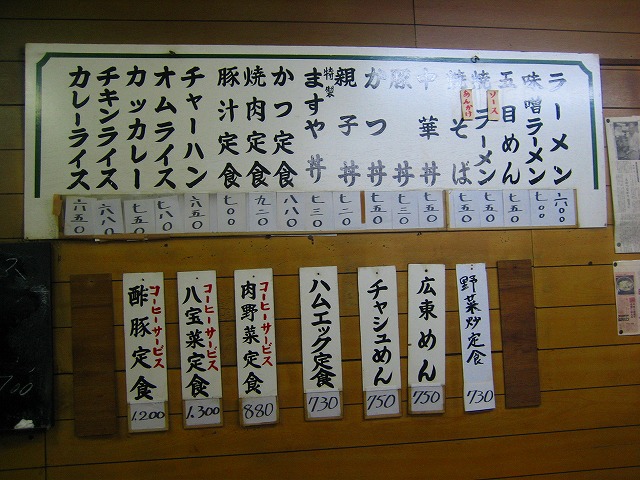 ラーメン 六〇〇
味噌ラーメン 七〇〇
五目めん 七五〇
焼 ソース ラーメン 七五〇
焼 あんかけ そば 七五〇
中華丼 七五〇
豚丼 七三〇
かつ丼 七五〇
親子丼 七二〇
特製ますや丼 七三〇
かつ定食 八八〇
焼肉定食 九二〇
豚汁定食 七〇〇
チャーハン 六五〇
オムライス 七八〇
カツカレー 七五〇
チキンライス 六八〇
カレーライス 六五〇
野菜炒定食 730
広東めん 750
チャシュめん 750
ハムエッグ定食 730
コーヒーサービス
肉野菜定食 880
コーヒーサービス
八宝菜定食 1.300
コーヒーサービス
酢豚定食 1.200